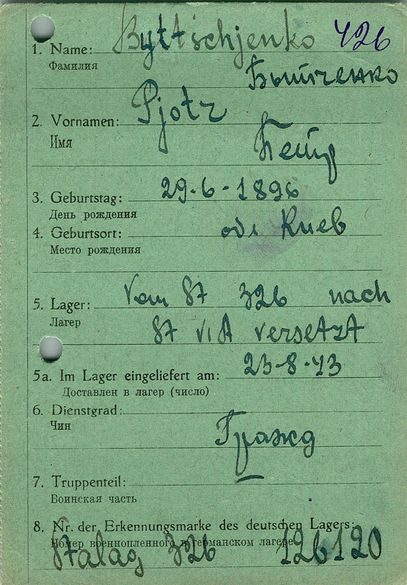 1. Name: Byttschjenko 426
Фамилия Бытченко
2. Vornamen: Pjotr
Имя Петр
3. Geburtstag: 29-6-1896
День рождения
4. Geburtsort: обл Киев
Место рождения
5. Lager: Vom ST 326 nach
Лагер ST VIA versetzt
5a. Im Lager eingeliefert am: 23-8-43
Доставлен в лагер (число)
6. Dienstgrad:
Чин Гражд
7. Truppenteil:
Воинская часть
8. Nr. der Erkennungsmarke des deutschen Lagers:
Номер военнопленного в германском лагере
Stalag 326 126120